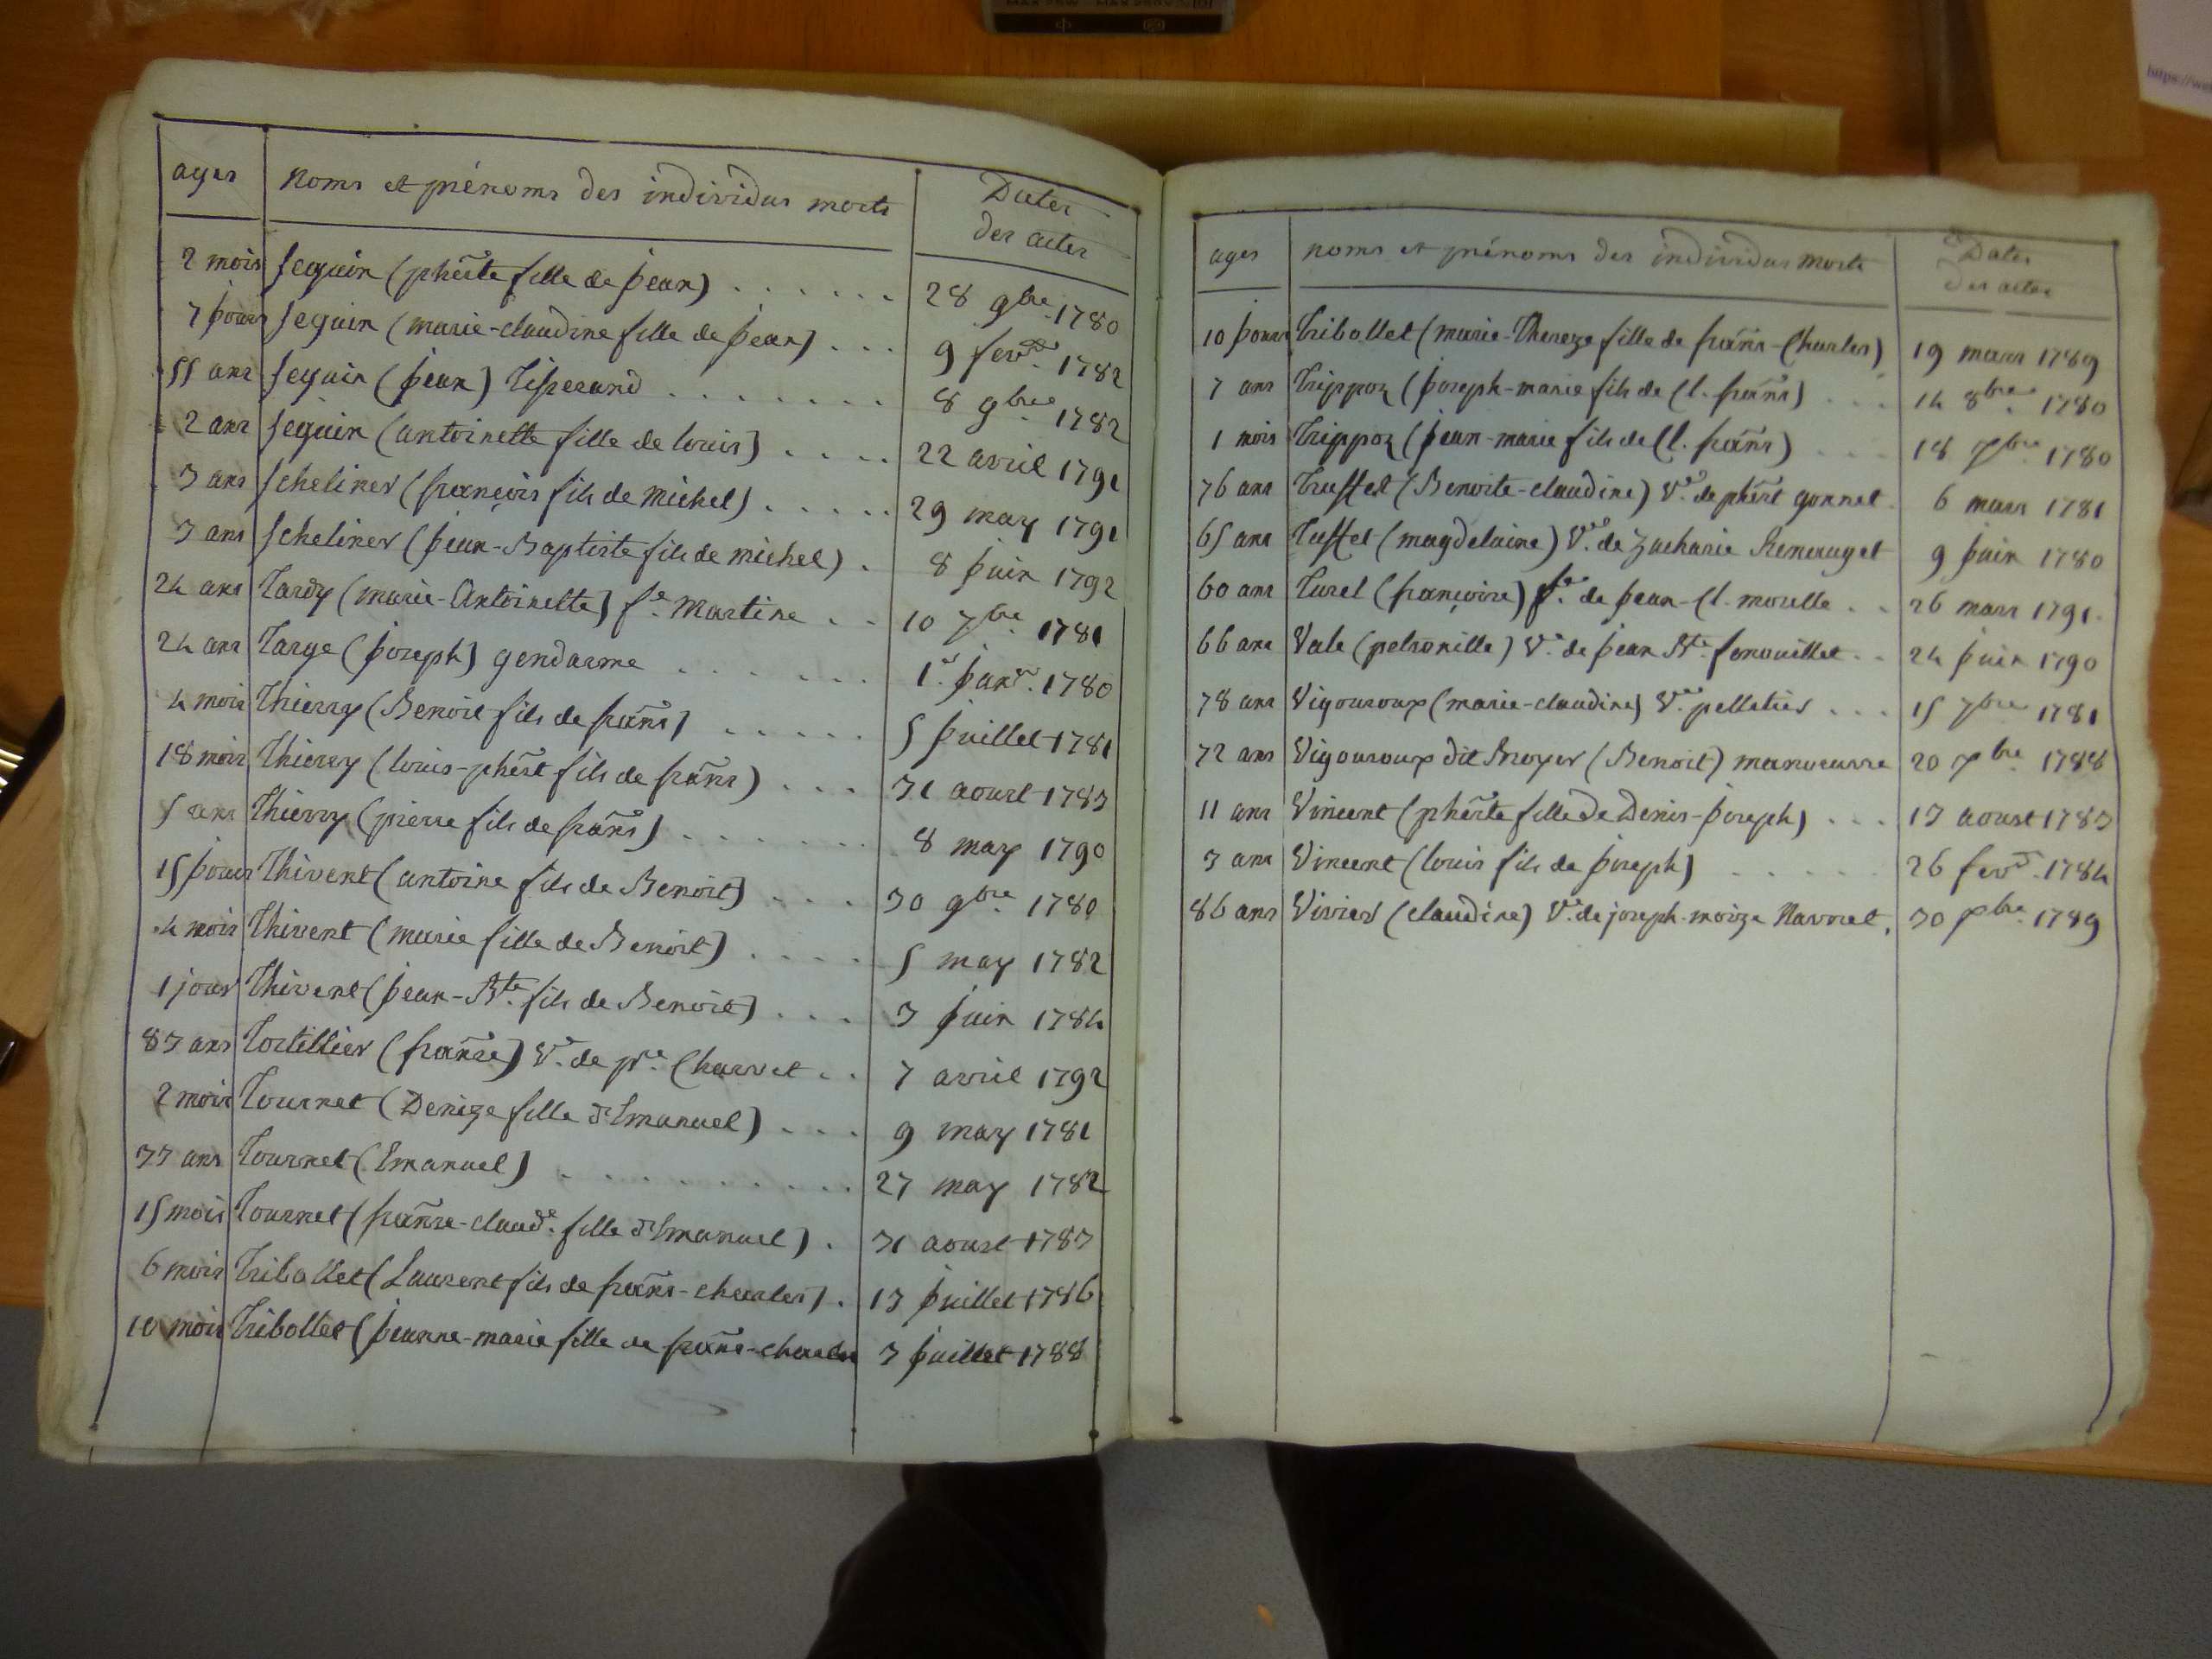 ages noms et prénoms des individus morts Dates
des actes
2 mois Seguin (phẽrte fille de Jean) . . . . . . 28 9bre 1780
7 jours Seguin (marie-claudine fille de Jean) . . . 9 fevr 1782
55 ans Seguin (Jean) Tisserand . . . . . . . 8 9bre 1782
2 ans Seguin (antoinette fille de louis) . . . . 22 avril 1791
3 ans Scheliner (françois fils de michel) . . . . . 29 may 1791
3 ans Scheliner (Jean-Baptiste fils de michel) . 8 Juin 1792
24 ans Tardy (marie-Antoinette) fe. Martine . . 10 7bre 1781
24 ans Targe (Joseph) gendarme . . . . . . . 1er Janr. 1780
4 mois Thierry (Benoit fils de frans) . . . . . 5 Juillet 1781
18 mois Thierry (louis-phẽrt fils de frans) . . . 31 aoust 1783
5 ans Thierry (pierre fils de frans) . . . . . . . 8 may 1790
15 jours Thivent (antoine fils de Benoit) . . . . 30 9bre 1780
4 mois Thivent (marie fille de Benoit) . . . . 5 may 1782
1 jour Thivent (Jean-Bte. fils de Benoit) . . . 3 Juin 1784
83 ans Tortillier (franse) Ve. de pre. Charvet . . 7 avril 1792
2 mois Tournet (Denize fille d'Emanuel) . . . 9 may 1781
33 ans Tournet (Emanuel) . . . . . . . . . 27 may 1782
15 mois Tournet (franse-claude. fille d'Emanuel) . 31 aoust 1783
6 mois Tribollet (Laurent fils de frans-charles) . 13 Juillet 1786
10 mois Tribollet (Jeanne-marie fille de frans-charles 3 Juillet 1788
ages noms et prénoms des individus morts Dates
des actes
10 jours Tribollet (marie-Thereze fille de frans-Charles) 19 mars 1789
7 ans Trippoz (Joseph-marie fils de Cl. frans) . . . 14 8bre. 1780
1 mois Trippoz (Jean-marie fils de Cl. frans) . . . 18 7bre 1780
76 ans Truffet (Benoite-claudine) Ve. de phẽrt gonnet . 6 mars 1781
65 ans Tuffet (magdelaine) Ve. de Zacharie 9 Juin 1780
60 ans Turel (françoise) fe. de Jean-Cl. morelle . . 26 mars 1791.
66 ans Vale (petronille) Ve. de Jean Bte. fenouillet . . 24 Juin 1790
78 ans Vigouroux (marie-claudine) Ve. pelletier . . . 15 7bre 1781
72 ans Vigouroux dit Broyer (Benoit) manoeuvre 20 7bre 1788
11 ans Vincent (phẽrte fille de Denis-Joseph) . . . 13 aoust 1783
3 ans Vincent (louis fils de Joseph) . . . . . 26 fevr. 1784
86 ans Vivier (claudine) Ve. de joseph-moize Navoret . 30 bre 1789